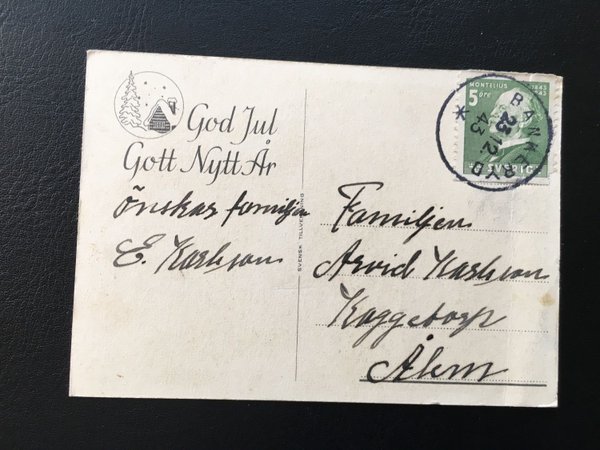 God Jul
Gott Nytt År
önskar familjen
E. Karlsson
SVENSK TILLVERKNING
MONTELIUS
5 ÖRE
1843
SVERIGE
BANKERYD
23 12
43
Familjen
Arvid Karlsson
Kaggetorp
Ålem